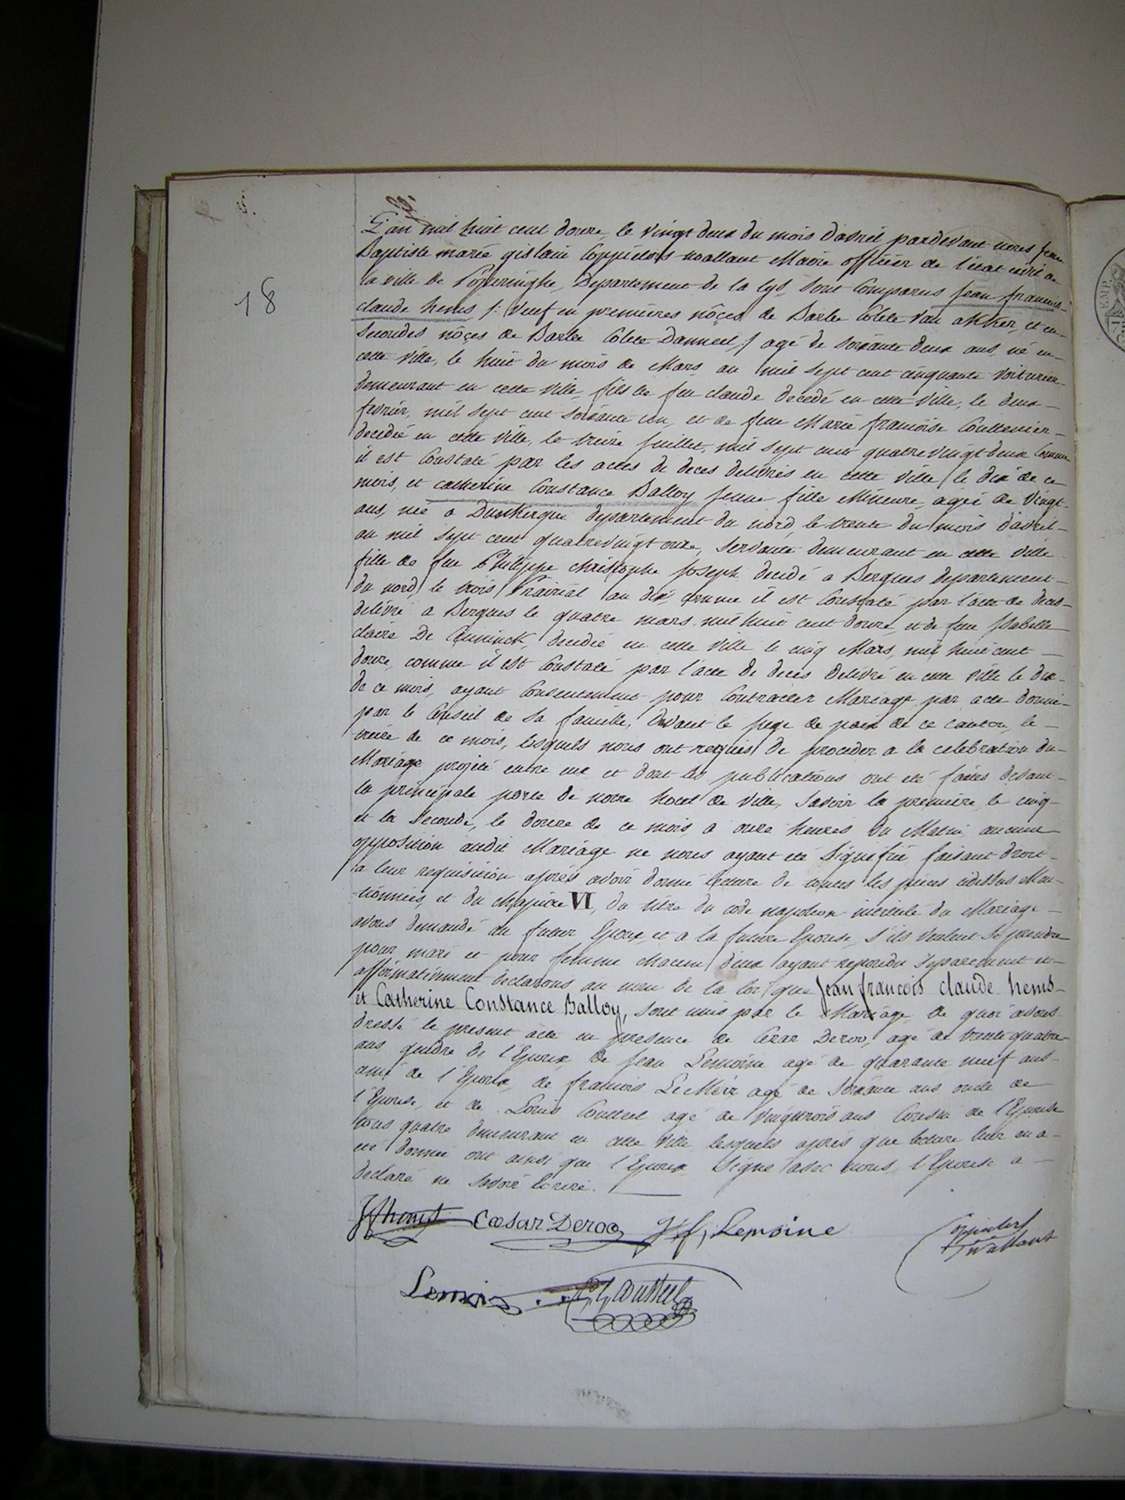 18
L'an mil huit cent douze, le vingt deux du mois d'avril pardevant nous Jean
Baptiste marie gislain Coppieters wallant Maire officier de l'état civil de
la ville de Poperinghe, Departement de la Lys, sont Comparus jean francois
claude hems /: Veuf en premières nôçes de Barbe Colete Van akker, et en
secondes nôçes de Barbe Colete Danneel,/ agé de soixante deux ans, né en
cette ville, le huit du mois de Mars au mil sept cent cinquante Voiturier
demeurant en cette ville, fils de feu claude decedé en cette ville, le deux
fevrier, mil sept cent soixante un, et de feue Marie francoise
decedée en cette ville, le treize juillet, mil sept cent quatrevingt deux Comme
il est Constaté par les actes de deces delivrés en cette ville, le dix de ce
mois, et catherine Constance Balloy jeune fille Mineure, agée de vingt
ans, née a Dunkerque departement du nord le trente du mois d'avril
au mil sept cent quatrevingt onze, servante demeurant en cette ville
fille de feu Philippe christophe Joseph decedé a Bergues departement
du nord, le trois Prairial an dix, comme il est Constaté par l'acte de deces
delivré a Bergues le quatre mars mil huit cent douze, et de feue Isabelle
claire De Conninck, decedée en cette ville le cinq Mars, mil huit cent
douze, comme il est Constaté par l'acte de deces delivré en cette ville le dix
de ce mois, ayant Consentement pour Contracter Mariage par acte donné
par le Conseil de sa famille, devant le juge de paix de ce canton, le
treize de ce mois, lesquels nous ont requis de proceder a la celebration du
Mariage projeté entre eux et dont les publications ont été faites devant
la principale porte de notre hotel de ville, Savoir la première, le cinq
et la Seconde, le douze de ce mois a onze heures du Matin aucune
opposition audit Mariage ne nous ayant été Signifiée faisant droit
a leur requisition après avoir donné lecture de toutes les pièces cidessus Men-
tionnées, et du chapitre VI, du titre du code napoleon intitulé du Mariage
avons demandé au futur Epoux, et a la future Epouse, s'ils veulent se prendre
pour mari et pour femme chacun d'eux ayant repondu separement et
affirmativement declarons au nom de la loi, que Jean francois claude hems
et Catherine Constance Balloy, sont unis par le Mariage de quoi avons
dressé le present acte en presence de Cesar Deroo, agé de trente quatre
ans gendre de l'Epoux, de Jean Lemoine agé de quarante neuf ans
ami de l'Epoux, de francois agé de soixante ans oncle de
l'Epouse, et de Louis agé de vingttrois ans Cousin de l'Epouse
tous quatre demeurant en cette Ville, lesquels apres que lecture leur en a
été donnée ont ainsi que l'Epoux Signé avec nous, l'Epouse a
declaré ne Savoir Ecrire.
Caesar Deroo Lemoine
Coppieters
Wallant